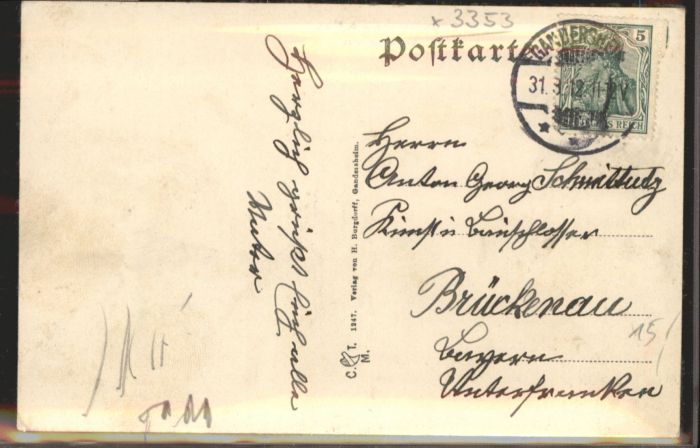 * 3353
Postkarte
GANDERSHEIM
31.3.12. 11-12 V.
5
DEUTSCHES REICH
Herzlich grüßt Euch alle
Mutter
C. & M. 1. 1247. Verlag von H. Burgdorff, Gandersheim.
Herrn
Anton Georg
Kunst u Bauschlosser
Brückenau
Bayern
Unterfranken
15